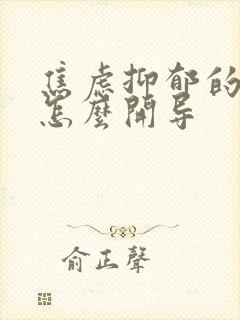 焦虑抑郁的
怎麼開导
俞正聲